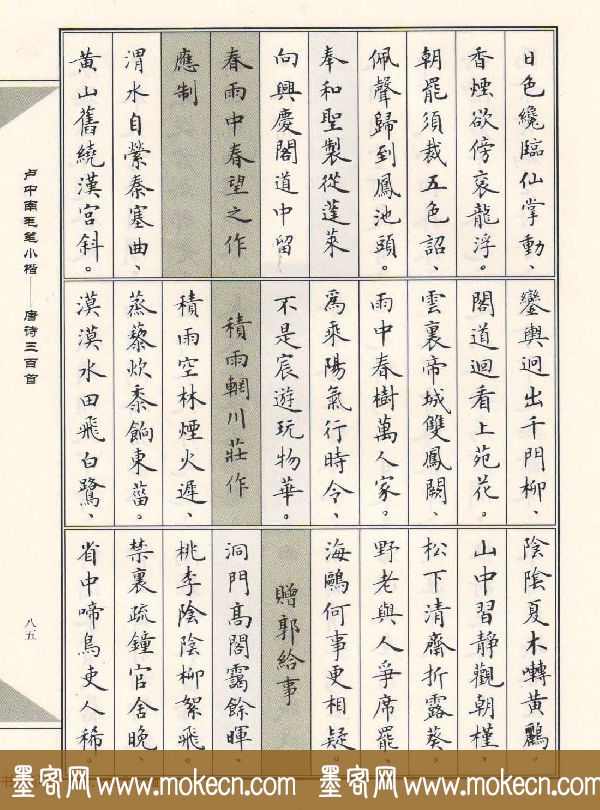 日色纔臨仙掌動、
香煙欲傍袞龍浮。
朝罷須裁五色詔、
佩聲歸到鳳池頭。
奉和聖製從蓬萊
向興慶閣道中留
春雨中春望之作
應制
渭水自縈秦塞曲、
黃山舊繞漢宮斜。
鑾輿迥出千門柳、
閣道迴看上苑花。
雲裏帝城雙鳳闕、
雨中春樹萬人家。
爲乘陽氣行時令、
不是宸遊玩物華。
積雨輞川莊作
積雨空林煙火遲、
蒸藜炊黍餉東菑。
漠漠水田飛白鷺、
陰陰夏木囀黃鸝。
山中習靜觀朝槿、
松下清齋折露葵。
野老與人爭席罷、
海鷗何事更相疑。
贈郭給事
洞門高閣靄餘暉、
桃李陰陰柳絮飛。
禁裏疏鐘官舍晚、
省中啼鳥吏人稀。
卢中南毛笔小楷——唐诗三百首
八五
墨客网 www.mokecn.com 墨客网 www.mokecn.com